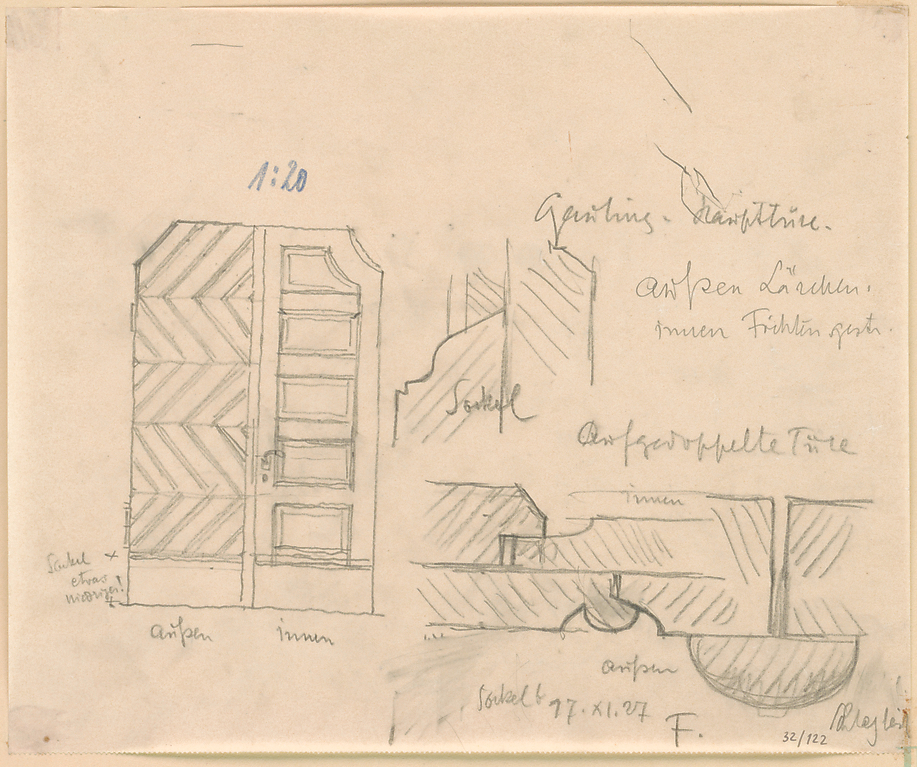 1:20
Gauting. Haupttüre.
außen Lärchen.
innen Fichten gestr.
Sockel
Aufgedoppelte Türe
innen
Sockel
etwas
niedriger!
außen innen
außen
Sockel 17.XI.27
F.
32/122